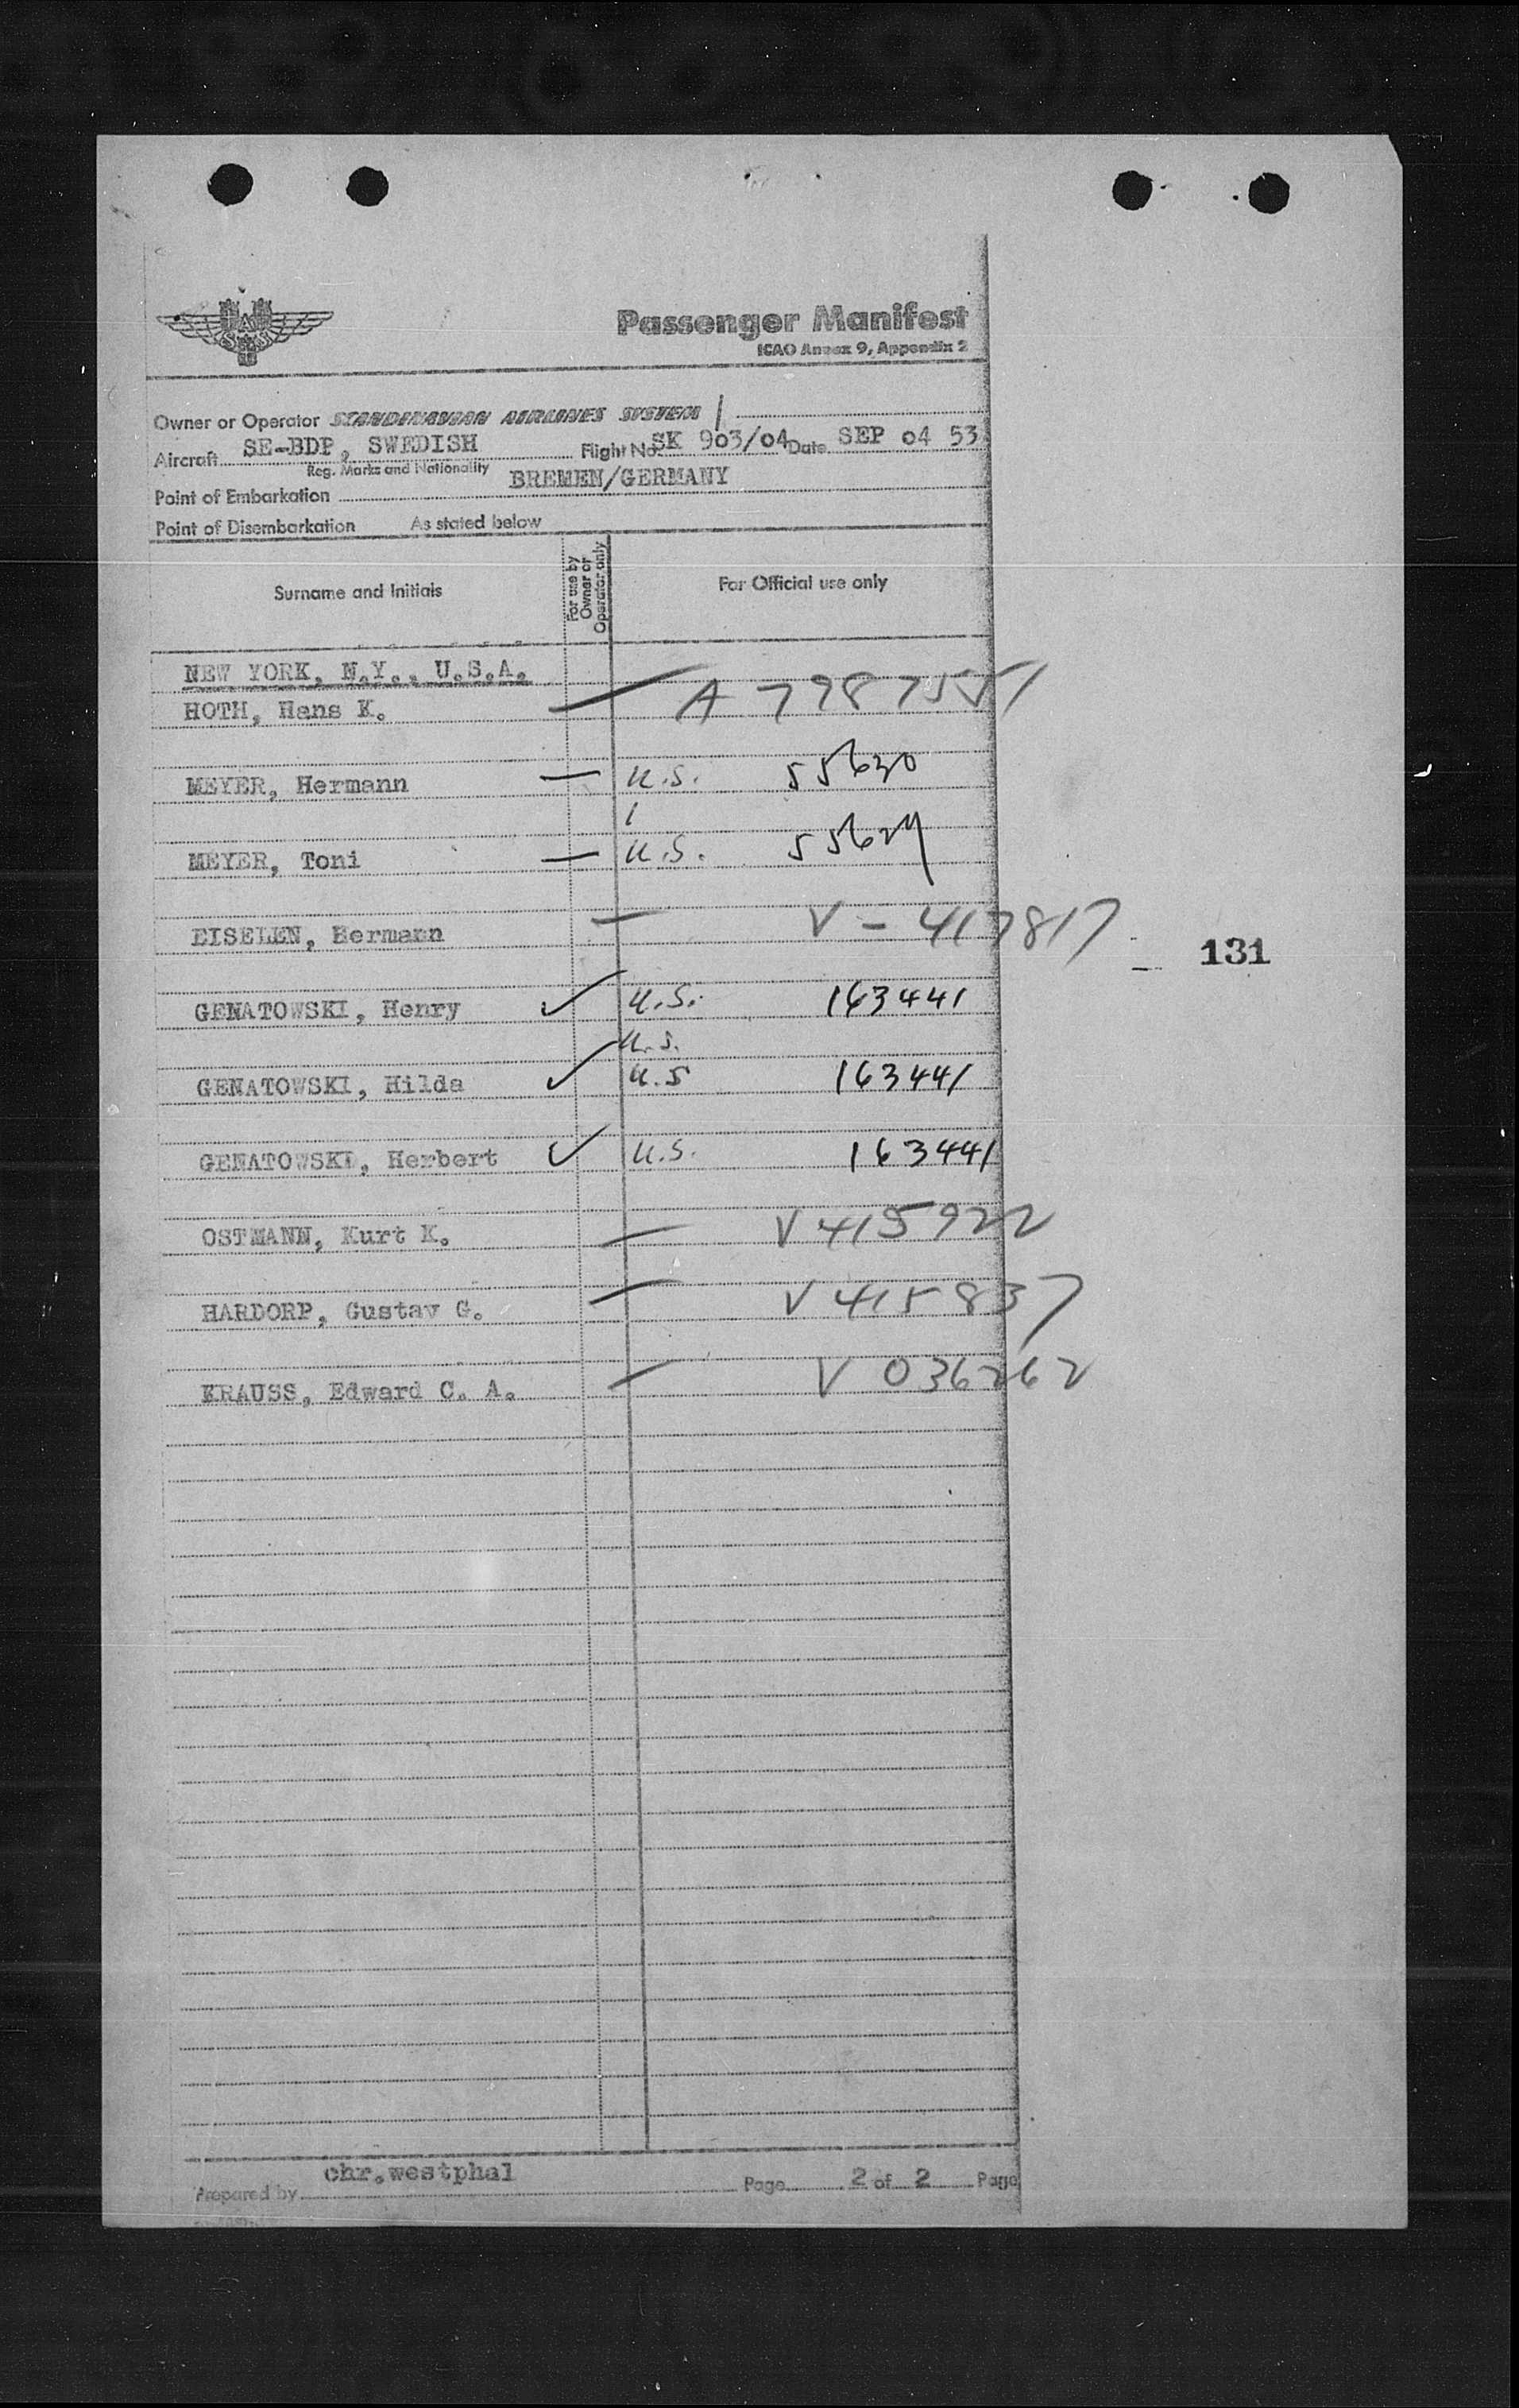 SAS
Passenger Manifest
ICAO Annex 9, Appendix 2
Owner or Operator SCANDINAVIAN AIRLINES SYSTEM
Aircraft SE-BDP, SWEDISH Flight No. SK 903/04 Date SEP 04 53
Reg. Marks and Nationality
Point of Embarkation BREMEN/GERMANY
Point of Disembarkation As stated below
Surname and Initials For use by Owner or Operator only For Official use only
NEW YORK, N.Y., U.S.A.
HOTH, Hans K. A 7987551
MEYER, Hermann U.S. 55630
MEYER, Toni U.S. 55629
EISELEN, Hermann V - 417817
131
GENATOWSKI, Henry U.S. 163441
U.S.
GENATOWSKI, Hilda U.S 163441
GENATOWSKI, Herbert U.S. 163441
OSTMANN, Kurt K. V 415922
HARDORP, Gustav G. V 415837
KRAUSS, Edward C. A. V 036262
Prepared by chr.westphal Page 2 of 2 Page